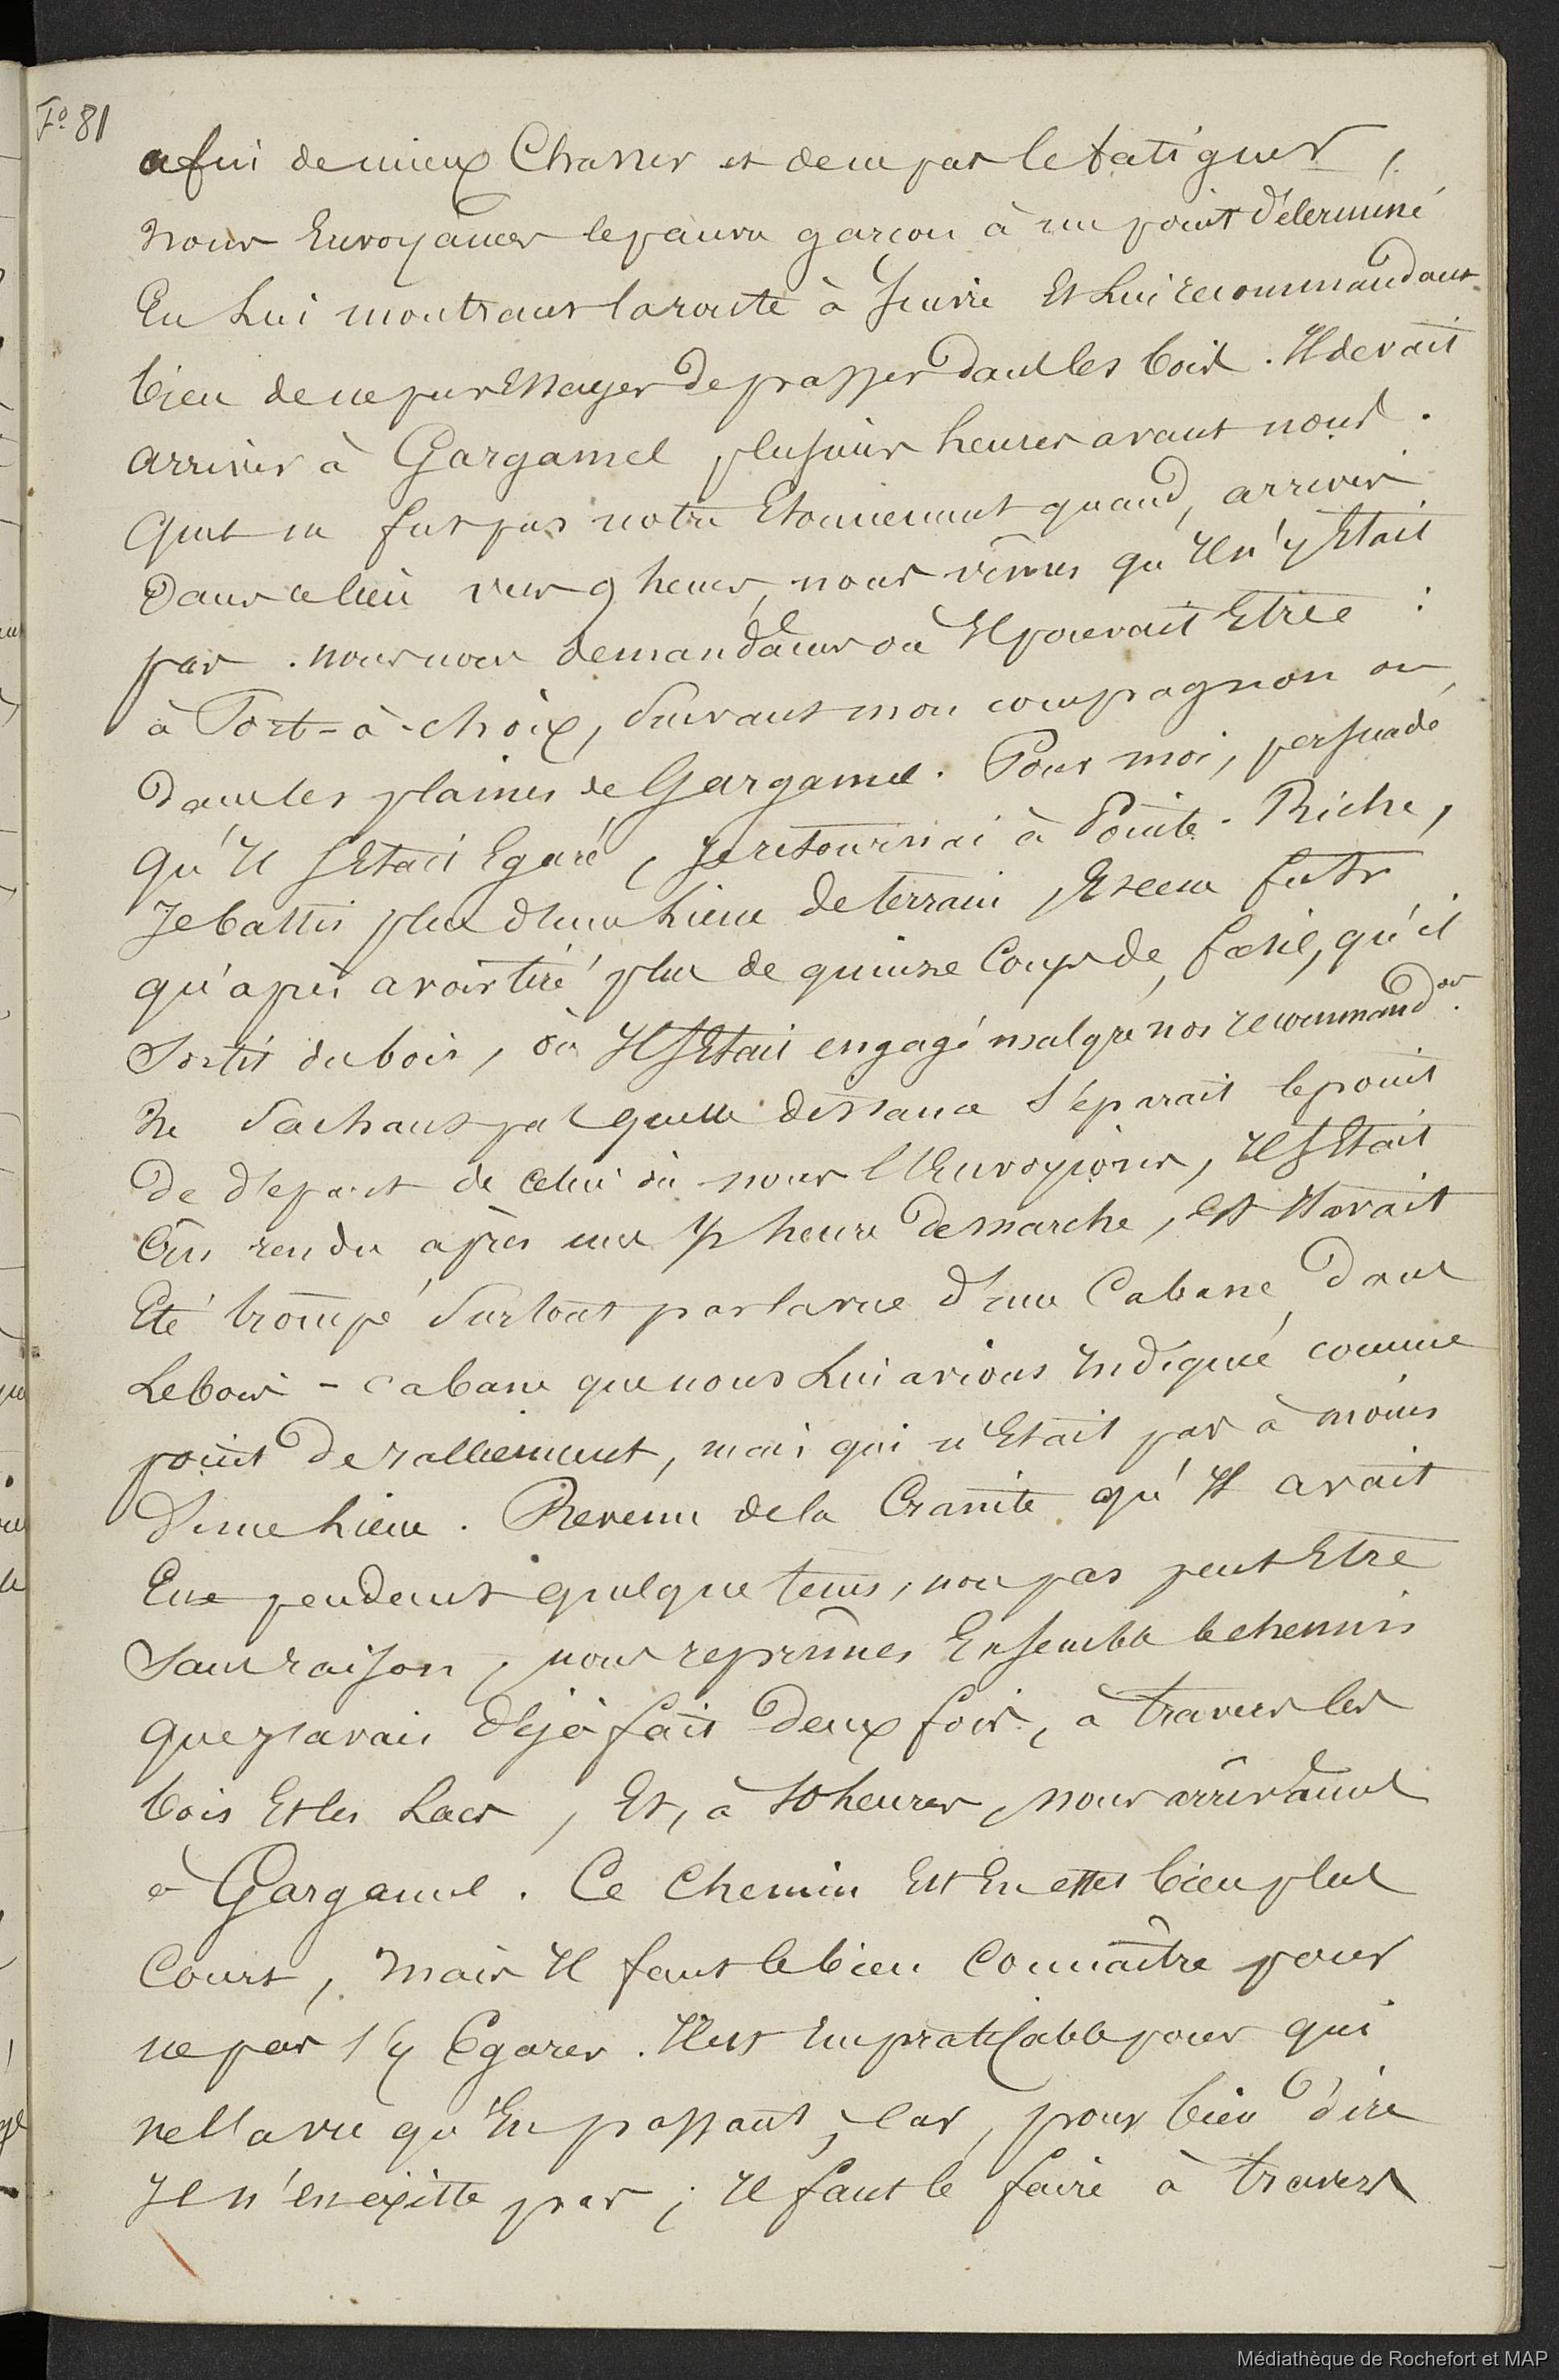 Fo. 81
afin de mieux Chasser et de ne pas le fatiguer,
nous Envoyâmes le pauvre garçon à un point d'éterminé
En Lui montrant la route à suivre Et Lui recommandant
bien de ne pas Essayer de passer dans les bois. Il devait
arriver à Gargamel plusieurs heures avant nous.
Quel ne fut pas notre Etonnement quand, arrivés
dans ce lieu vers 9 heures, nous vîmes qu'Il n'y Etait
pas. nous nous demandâmes où Il pouvait Etre :
à Port-à-choix, suivant mon compagnon ou
dans les plaines de Gargamel. Pour moi, persuadé
qu'Il s'Etait Egaré, Je retournai à Pointe-Riche,
Je battis plus d'une Lieue de terrain, Et ce ne fut
qu'après avoir tiré plus de quinze Coups de fusil, qu'il
sortit du bois, où Il s'Etait engagé malgré nos recommand.ons
Ne sachant pas quelle distance s'éparait le point
de d'épart de celui où nous l'Envoyions, Il s'Etait
Cru rendu après une 1/2 heure de marche, Et Il avait
Eté trompé surtout par la vue d'une Cabane dans
Le bois - cabane que nous Lui avions Indiqué comme
point de ralliement, mais qui n'Etait pas à moins
d'une Lieue. Revenu de la Crainte qu'Il avait
Eue pendant quelque tems, non pas peut Etre
sans raison, nous reprîmes Ensemble le chemin
que J'avais d'éjà fait deux fois, à travers les
bois Et les Lacs, Et, à 10 heures, nous arrivâmes
à Gargamel. Ce chemin Est En effet bien plus
Court, mais Il faut le bien Connaître pour
ne pas s'y Egarer. Il est Impraticable pour qui
ne l'a vu qu'En passant, car, pour bien dire
Il n'en existe pas ; Il faut le faire à travers
Médiathèque de Rochefort et MAP